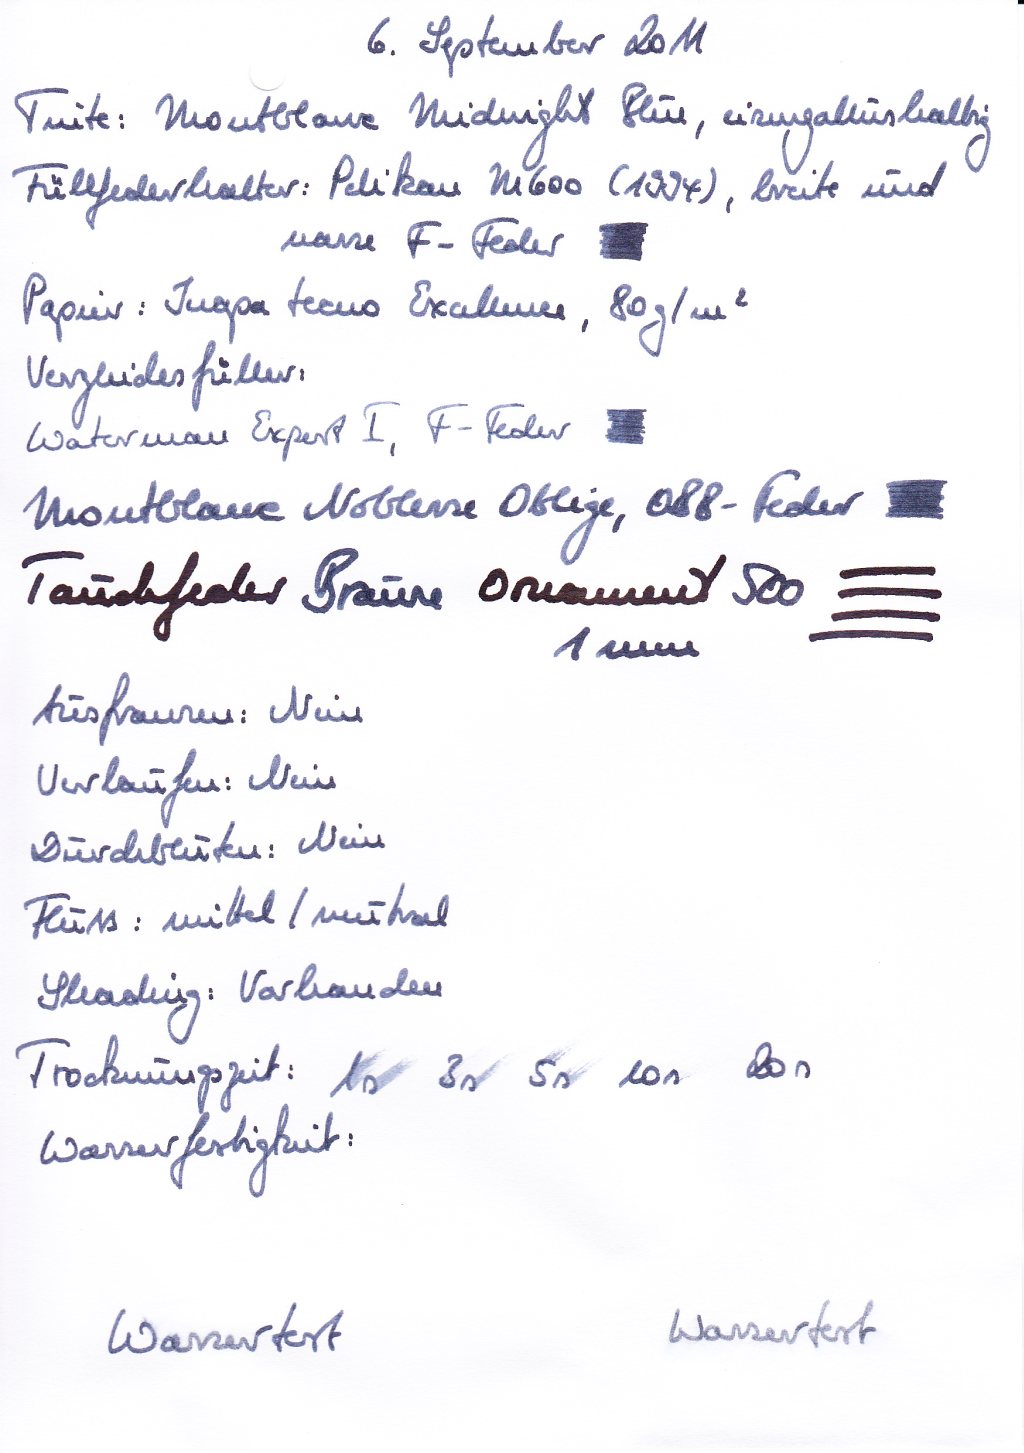 6. September 2011
Tinte: Montblanc Midnight Blue, eisengallushaltig
Füllfederhalter: Pelikan M600 (1994), breite und
nasse F-Feder
Papier: Inapa tecno Excellence, 80g/m²
Vergleichsfüller:
Waterman Expert I, F-Feder
Montblanc Noblesse Oblige, OBB-Feder
Tauchfeder Brause Ornament 500
1 mm
Ausfransen: Nein
Verlaufen: Nein
Durchbluten: Nein
Fluss: mittel/neutral
Shading: Vorhanden
Trocknungszeit: 1s 3s 5s 10s 20s
Wasserfestigkeit:
Wassertest Wassertest